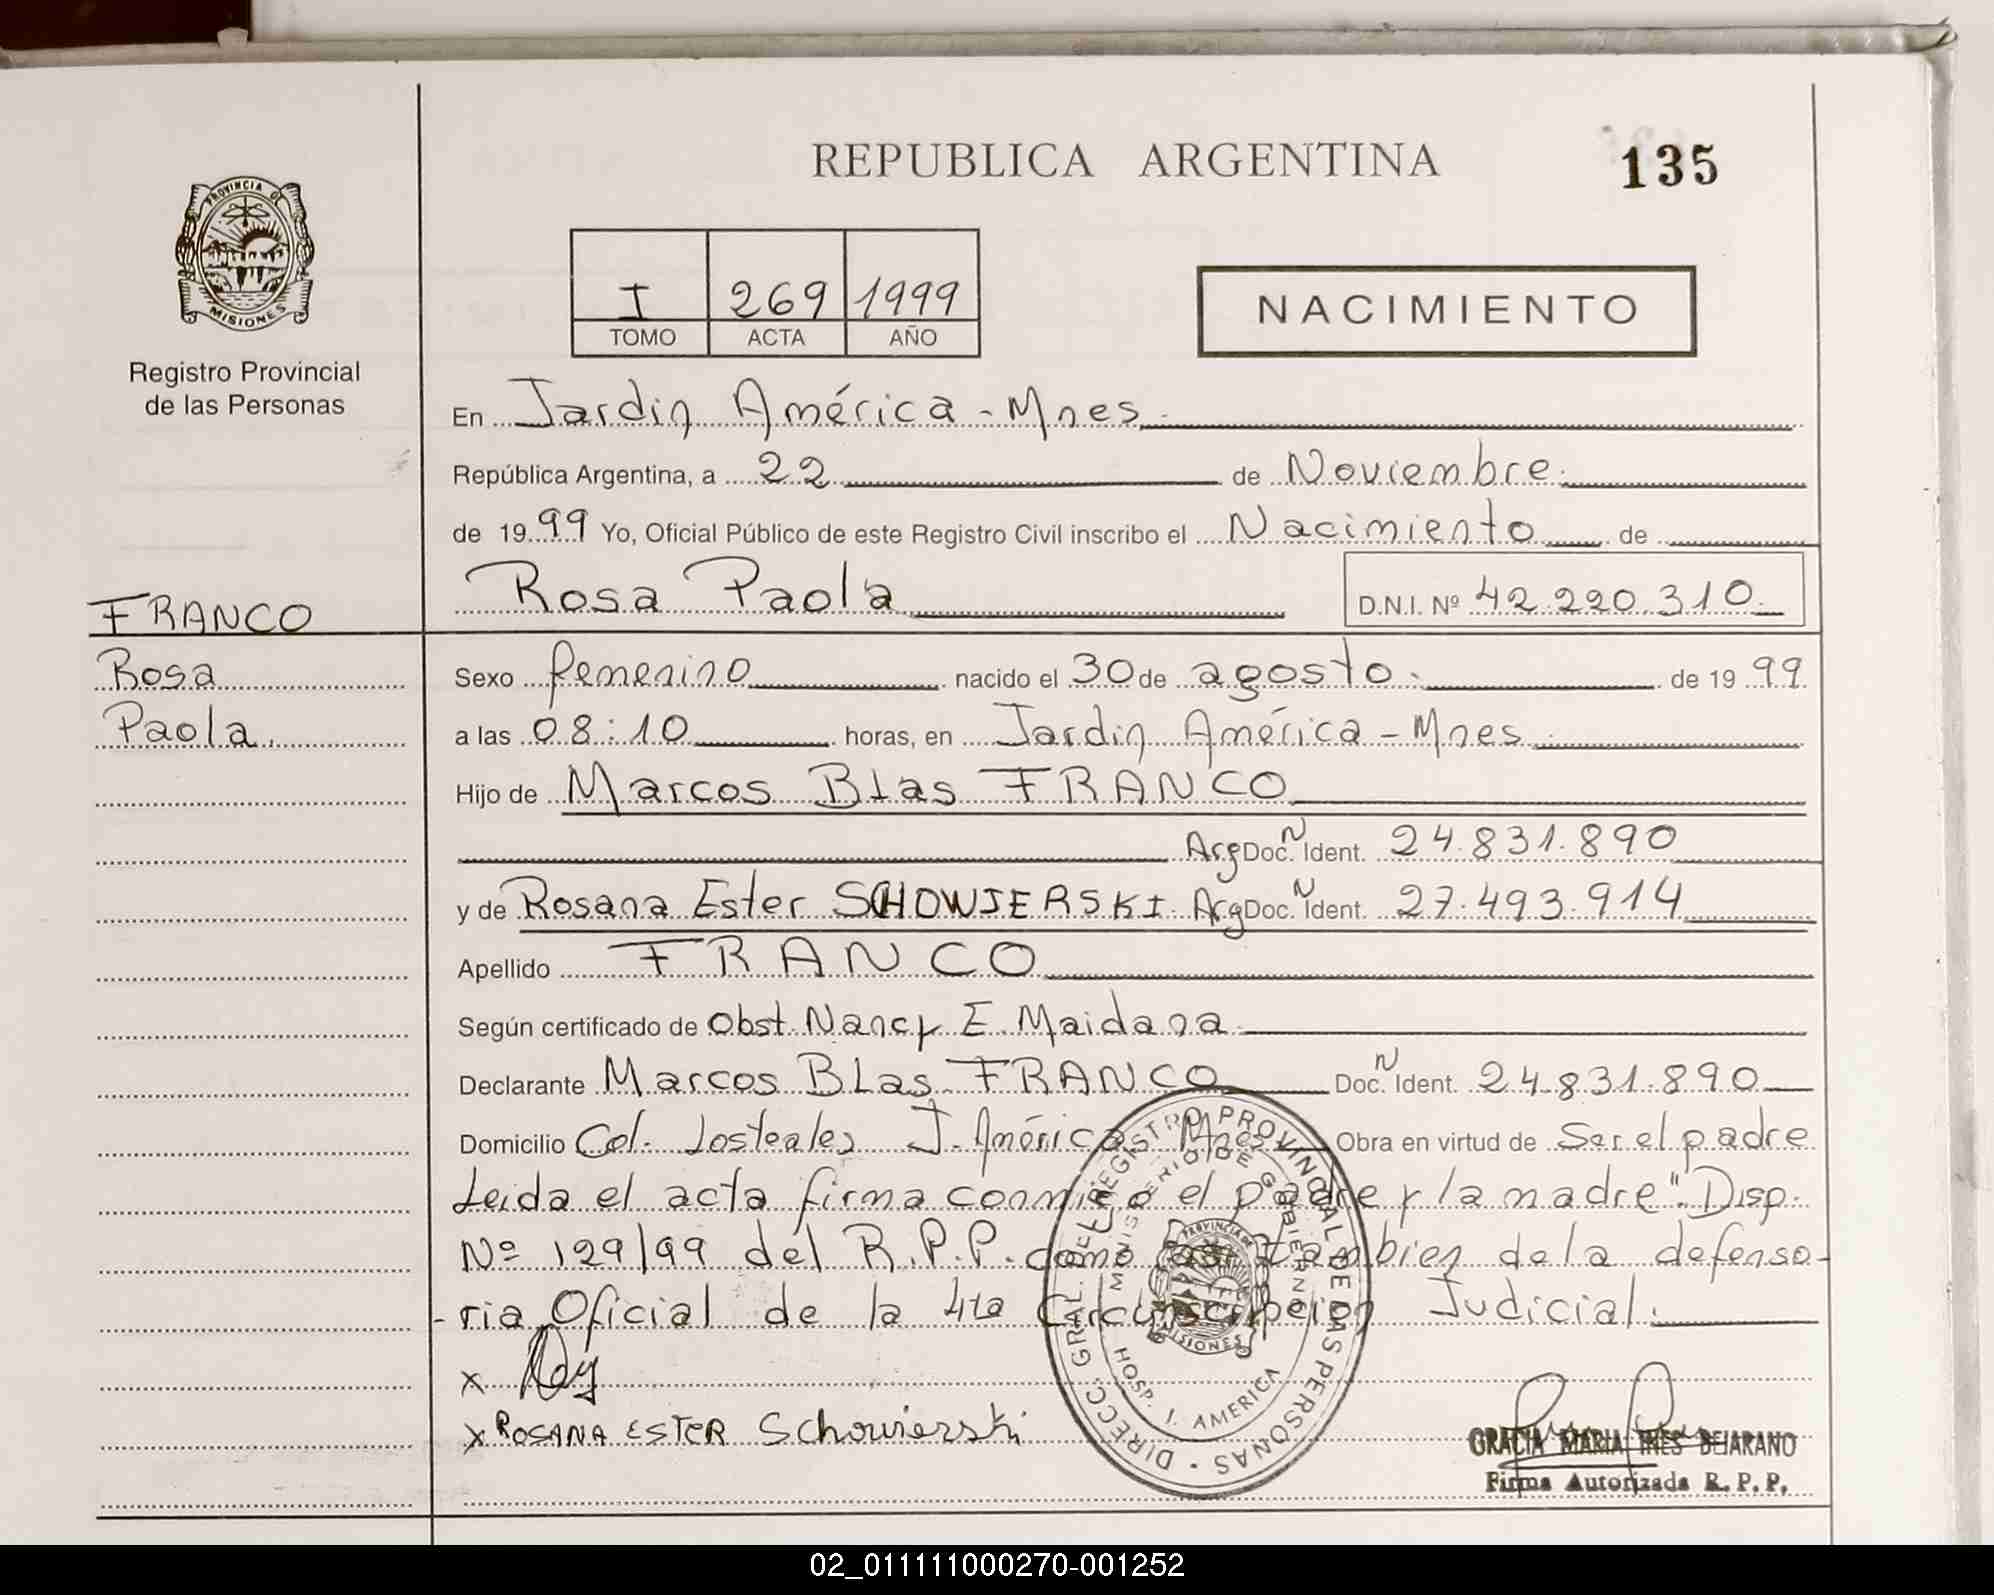 REPUBLICA ARGENTINA
135
PROVINCIA DE
MISIONES
Registro Provincial
de las Personas
I 269 1999
TOMO ACTA AÑO
NACIMIENTO
En Jardin América - Mnes.
República Argentina, a 22 de Noviembre.
de 19 99 Yo, Oficial Público de este Registro Civil inscribo el Nacimiento de
Rosa Paola D.N.I. Nº 42.220.310.
FRANCO
Rosa
Paola.
Sexo femenino nacido el 30 de agosto. de 19 99
a las 08:10 horas, en Jardin América - Mnes.
Hijo de Marcos Blas FRANCO
Arg Doc. N Ident. 24.831.890
y de Rosana Ester SCHOWIERSKI. Arg Doc. N Ident. 27.493.914
Apellido FRANCO
Según certificado de Obst. Nancy E. Maidana.
Declarante Marcos BLas FRANCO Doc. N Ident. 24.831.890
Domicilio Col. Losteales J. América Mnes Obra en virtud de Ser el padre
Leida el acta firma conmigo el padre y la madre". Disp.
Nº 129/99 del R.P.P. como asi tambien de la defenso-
-ria Oficial de la 4ta Circunscripcion Judicial.
x
x ROSANA ESTER Schowierski
DIRECC. GRAL. DEL REGISTRO PROVINCIAL DE LAS PERSONAS
MINISTERIO DE GOBIERNO
HOSP. J. AMERICA
PROVINCIA DE
MISIONES
GRACIA MARIA INES BEJARANO
Firma Autorizada R. P. P.
02_011111000270-001252